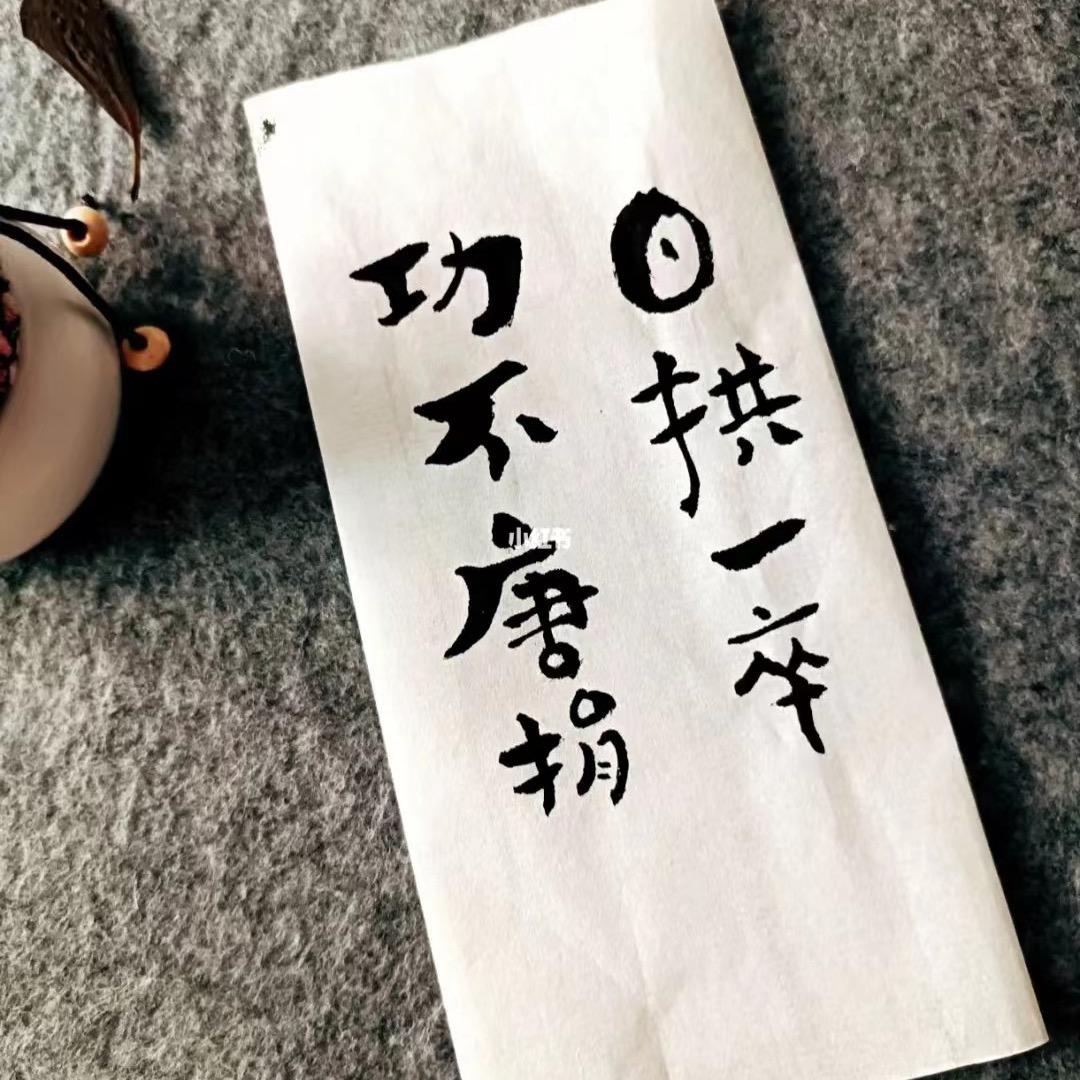 日拱一卒
功不唐捐
小红书